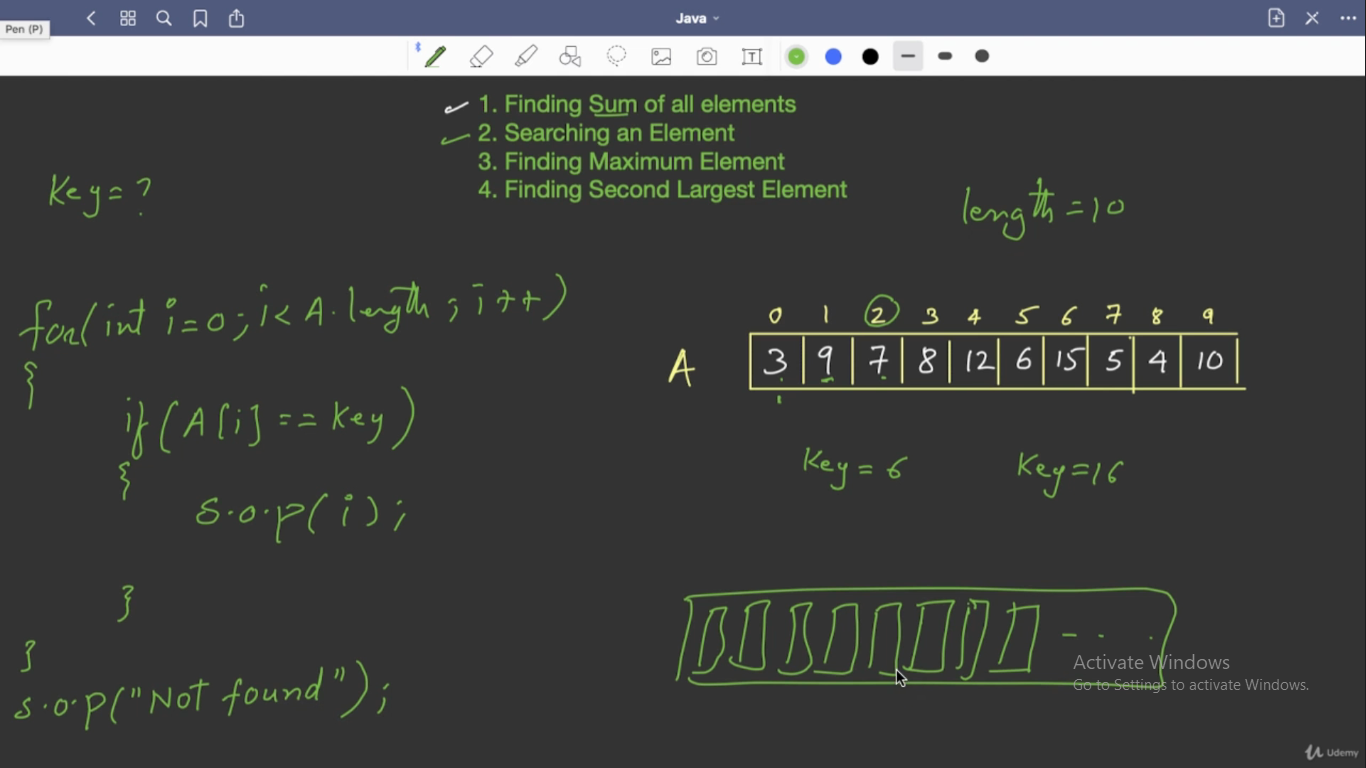 Java
Pen (P)
1. Finding Sum of all elements
2. Searching an Element
3. Finding Maximum Element
4. Finding Second Largest Element
Key = ?
length = 10
for(int i=0; i< A.length ; i++)
{
if(A[i] == Key)
{
s.o.p(i);
}
}
s.o.p("Not found");
0 1 2 3 4 5 6 7 8 9
A 3 9 7 8 12 6 15 5 4 10
Key = 6 Key=16
Activate Windows
Go to Settings to activate Windows.
Udemy